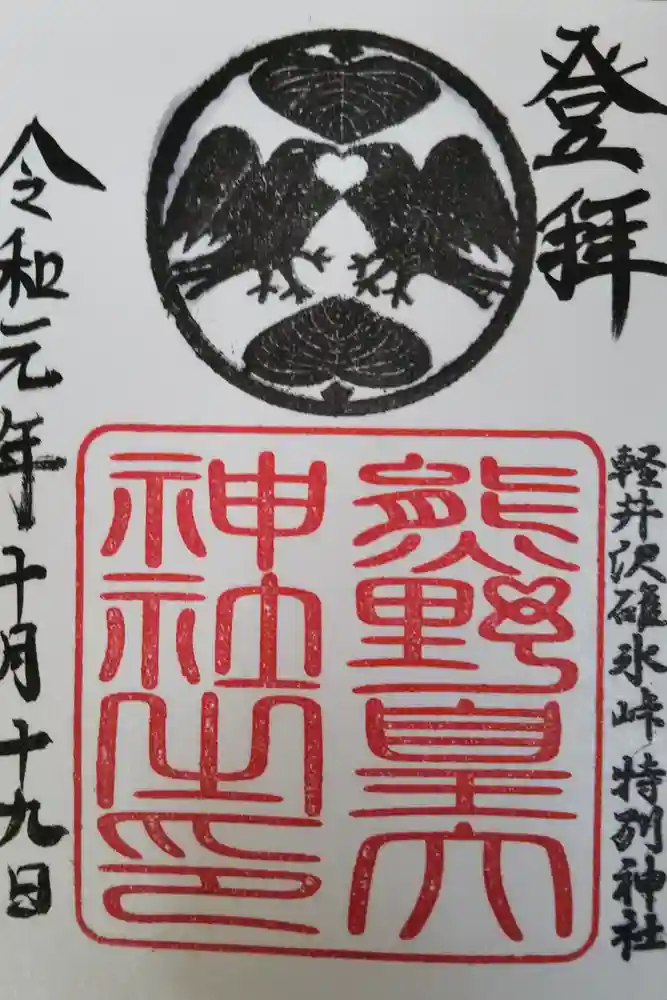 登拝
軽井沢碓氷峠特別神社
熊野皇大
神社之印
令和元年十月十九日